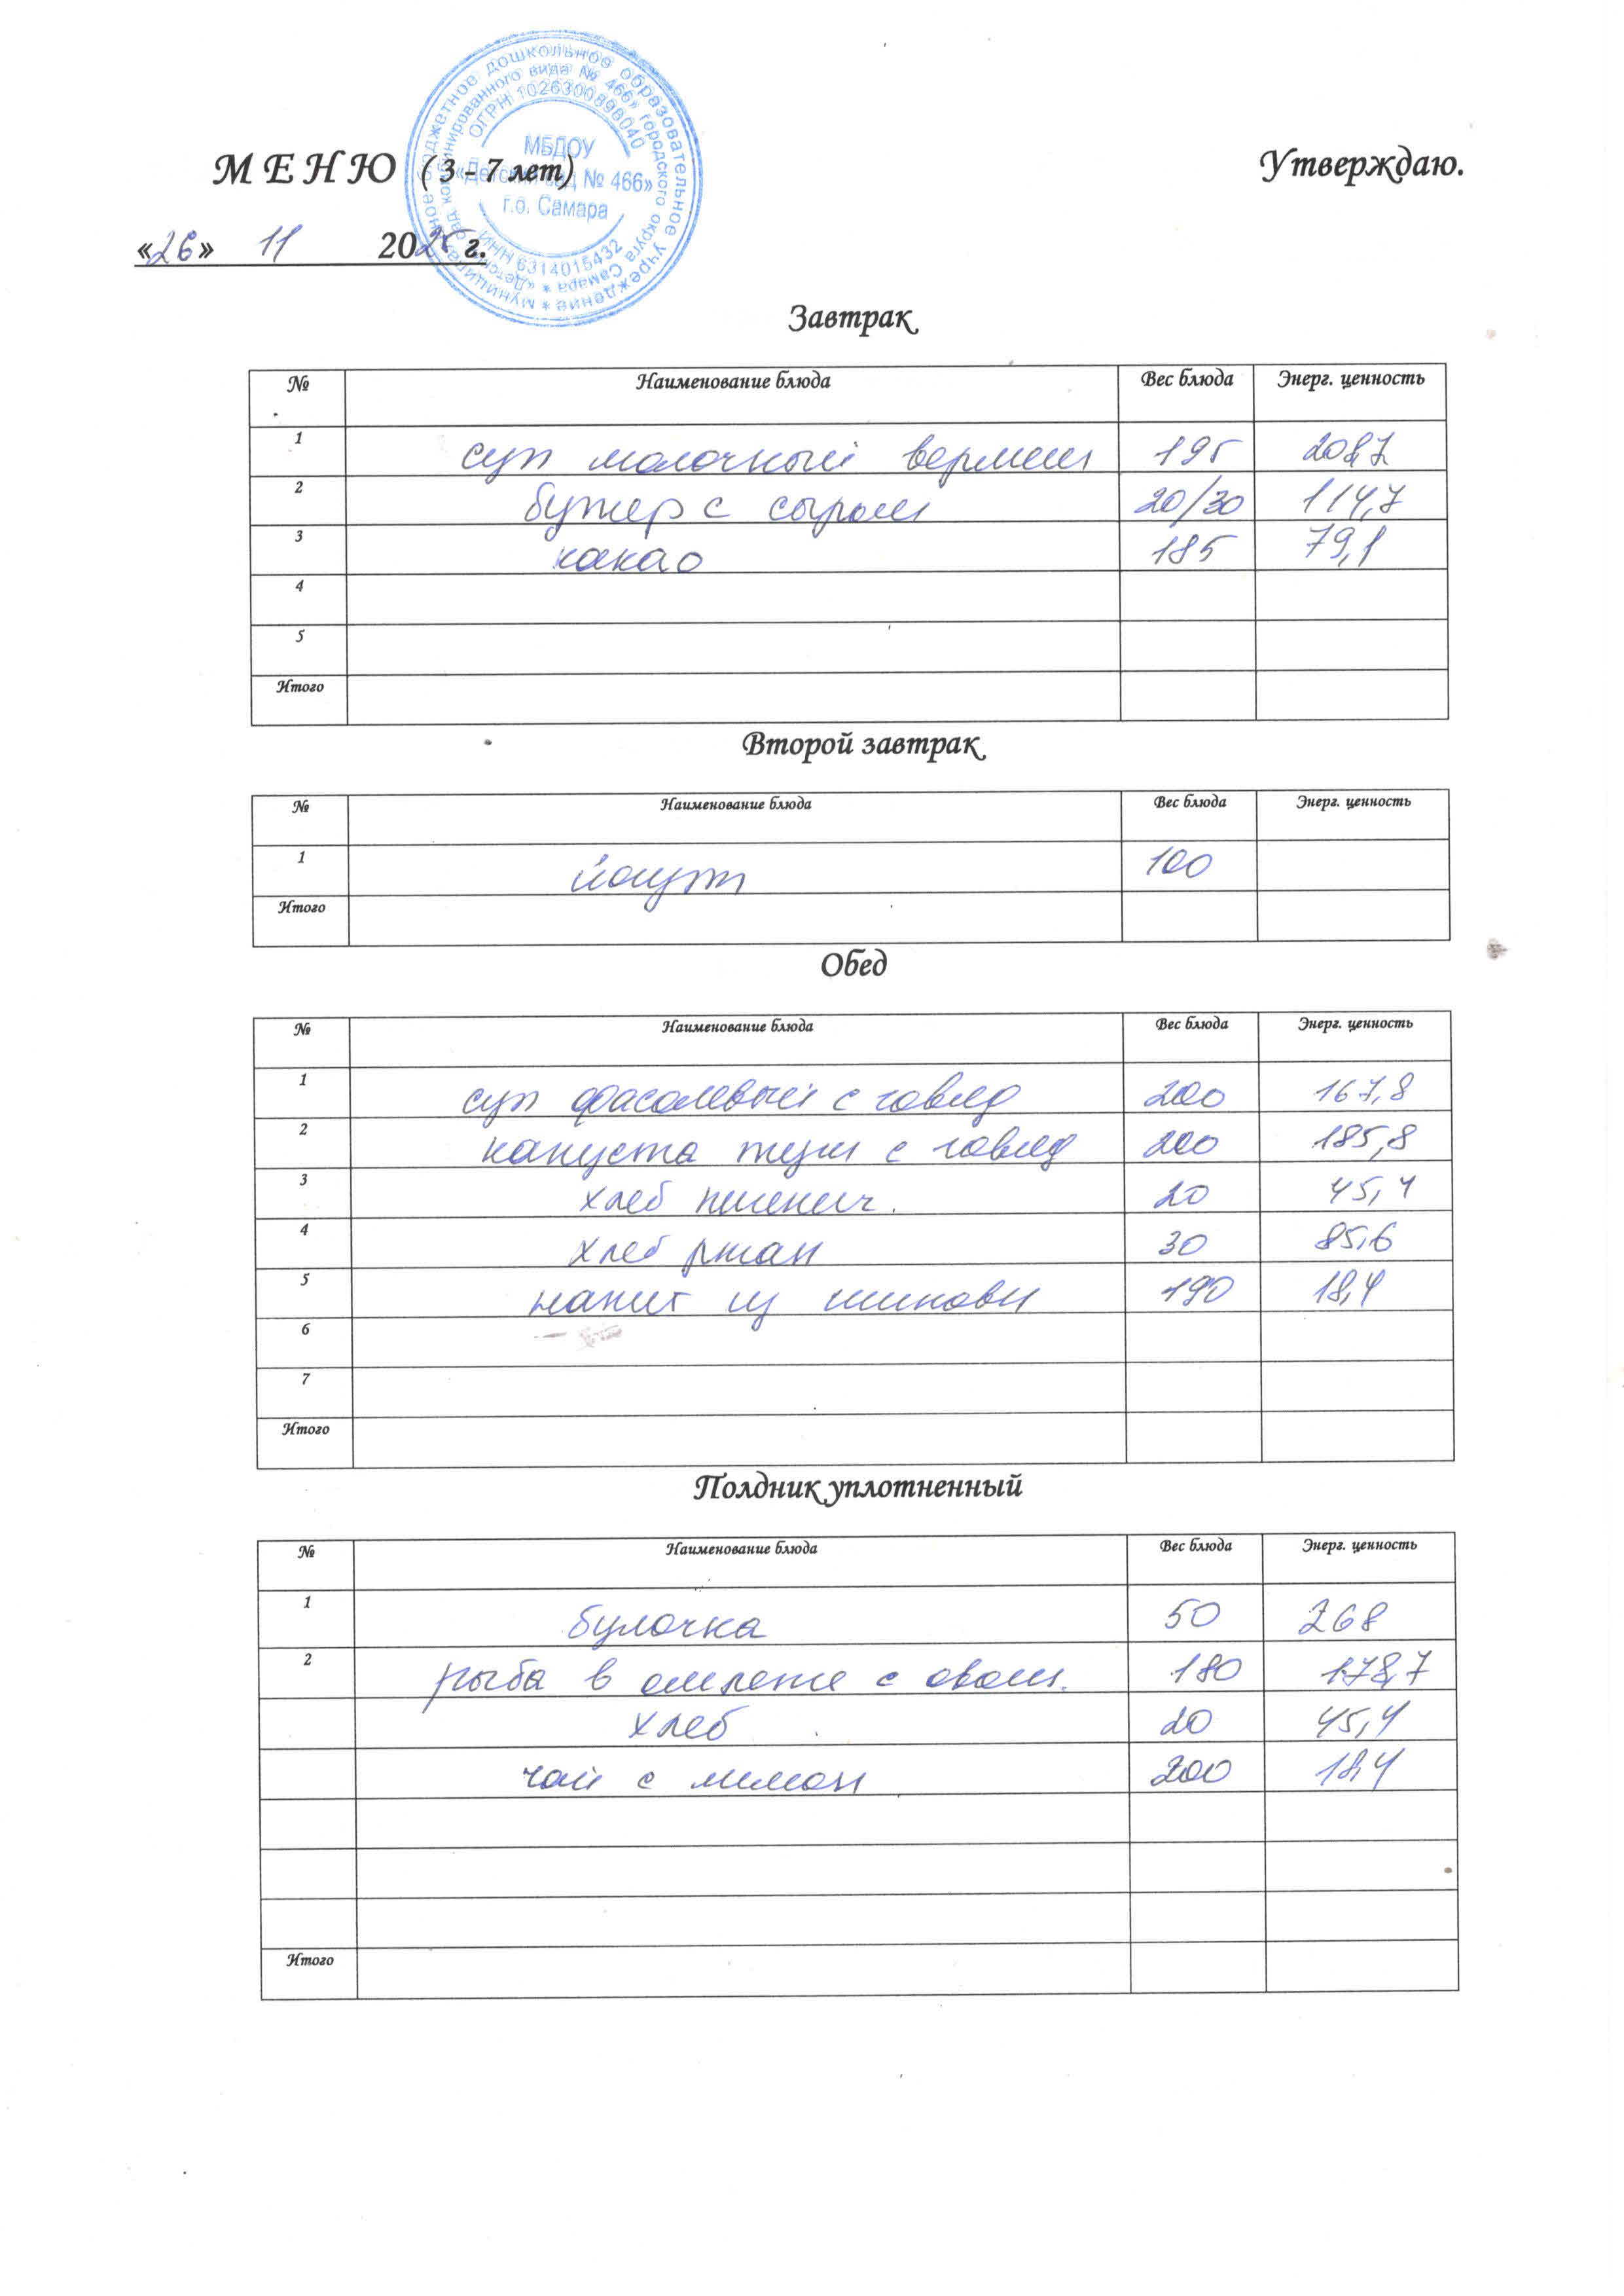 муниципальное бюджетное дошкольное образовательное учреждение *
«Детский сад комбинированного вида № 466» городского округа Самара *
ОГРН 1026300898040
МБДОУ
«Детский сад № 466»
г.о. Самара
ИНН 6314015432
МЕНЮ (3 - 7 лет) Утверждаю.
«26» 11 2025 г.
Завтрак
№ Наименование блюда Вес блюда Энерг. ценность
1 суп молочный вермиш 195 208,7
2 бутер с сыром 20/30 114,7
3 какао 185 79,1
4
5
Итого
Второй завтрак
№ Наименование блюда Вес блюда Энерг. ценность
1 йогурт 100
Итого
Обед
№ Наименование блюда Вес блюда Энерг. ценность
1 суп фасолевый с говяд 200 167,8
2 капуста туш с говяд 200 185,8
3 хлеб пшенич. 20 45,4
4 хлеб ржан 30 85,6
5 напит из шиповн 190 18,4
6
7
Итого
Полдник уплотненный
№ Наименование блюда Вес блюда Энерг. ценность
1 булочка 50 268
2 рыба в омлете с овощ. 180 178,7
хлеб 20 45,4
чай с лимон 200 18,4
Итого